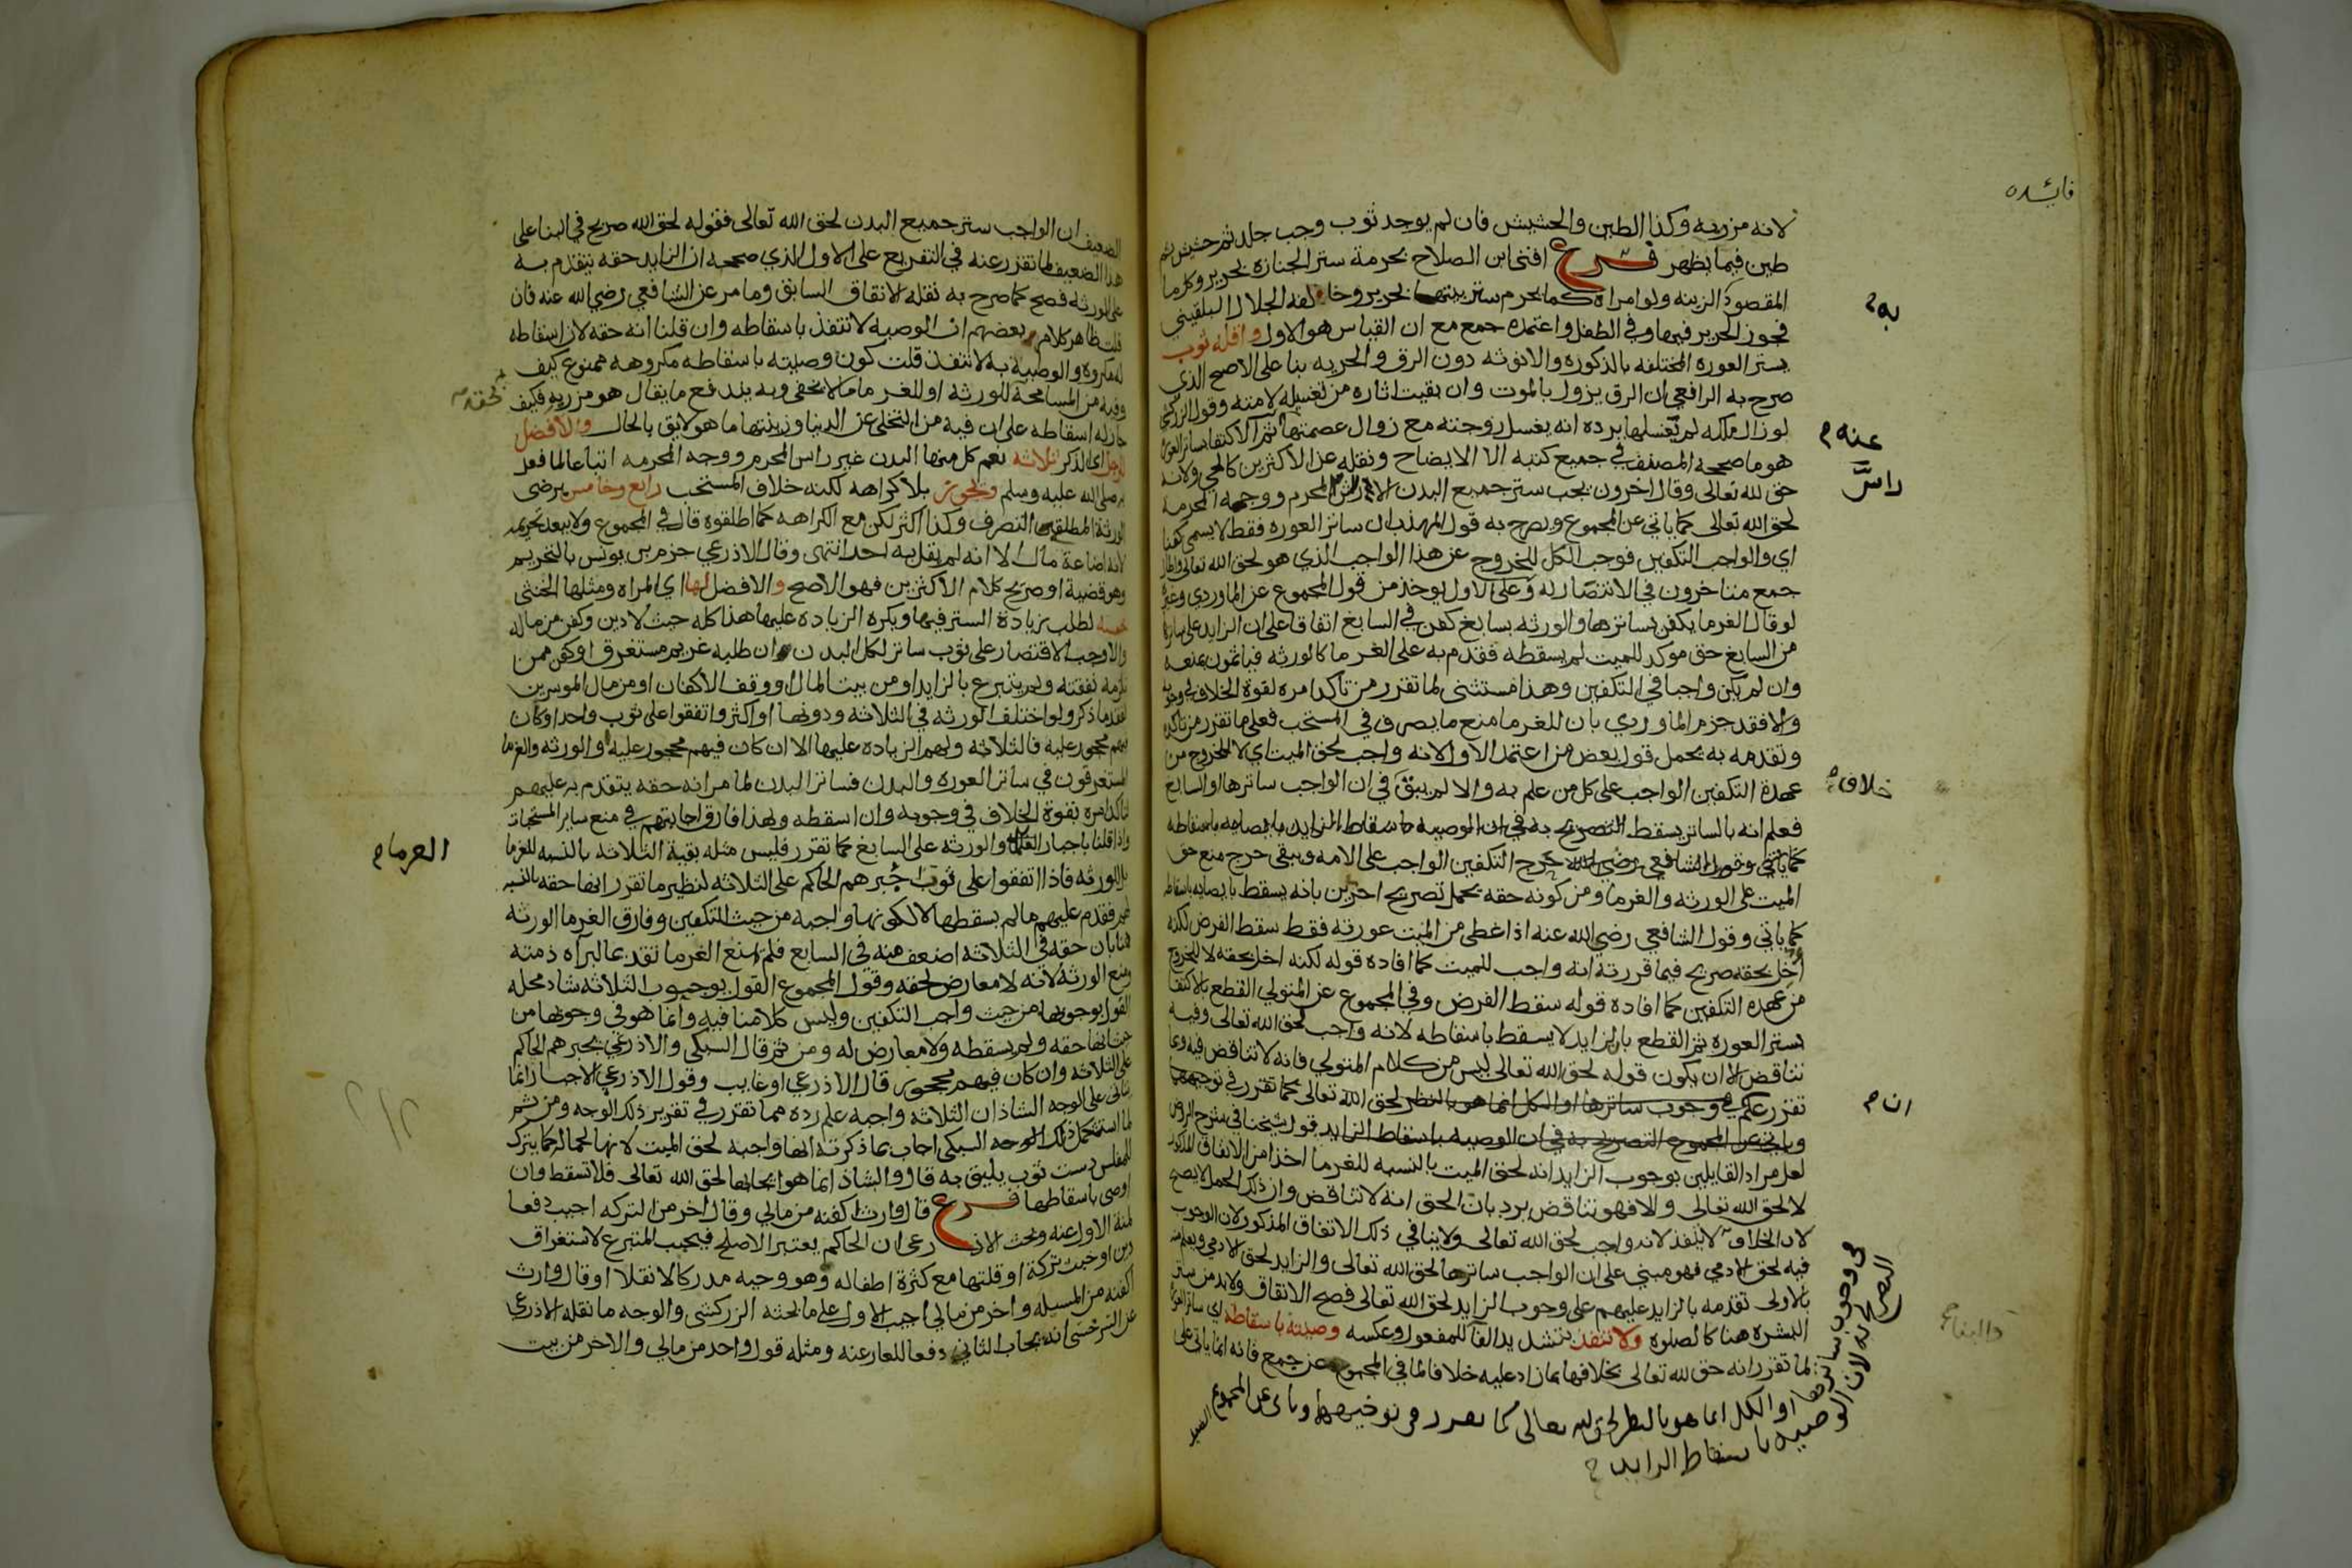 فايده
لانه مزريه وكذا الطين والحشيش فان لم يوجد ثوب وجب جلد ثم حشيش ثم
طين فيما يظهر فرع افتى ابن الصلاح بحرمة ستر الجنازة بحرير وكل ما
المقصود الزينه ولو امراة كما يحرم ستر بيتها بحرير وخالفه الجلال البلقيني
فجوز الحرير فيها وفي الطفل واعتمده جمع مع ان القياس هو الاول واقله ثوب
يستر العوره المختلفه بالذكوره والانوثه دون الرق والحريه بنا على الاصح الذي
صرح به الرافعي ان الرق يزول بالموت وان بقيت اثاره من تغسيله لامته وقول الزركشي
لوزال ملكه لم تغسلها يرده انه يغسل زوجته مع زوال عصمتها ثم الاكتفا بساتر العوره
هو ما صححه المصنف في جميع كتبه الا الايضاح ونقله عن الاكثرين كالحي ولانه
حق لله تعالى وقال اخرون يجب ستر جميع البدن الا راس المحرم ووجه المحرمة
لحق الله تعالى كما ياتي عن المجموع ويصرح به قول المهذب ان ساتر العوره فقط لا يسمى كفنا
اي والواجب التكفين فوجب الكل للخروج عن هذا الواجب الذي هو لحق الله تعالى واطال
جمع متاخرون في الانتصار له وعلى الاول يوخذ من قول المجموع عن الماوردي وغيره
لو قال الغرما يكفن بساترها والورثه بسابغ كفن في السابغ اتفاقا على ان الزايد على ساترها
من السابغ حق موكد للميت لم يسقطه فقدم به على الغرما كالورثه فياثمون بمنعه
وان لم يكن واجبا في التكفين وهذا مستثنى لما تقرر من تاكد امره لقوة الخلاف في وجوبه
والا فقد جزم الماوردي بان للغرما منع ما يصرف في المستحب فعلى ما تقرر من تاكده
وتقدمه به يحمل قول بعض من اعتمد الاول انه واجب لحق الميت اي لا للخروج من
عهدة التكفين الواجب على كل من علم به والا لم يبق في ان الواجب ساترها او السابغ
فعلم انه بالساتر يسقط
حرج التكفين الواجب على الامه ويبقى حرج منع حق
الميت على الورثه والغرما ومن كونه حقه يحمل تصريح اخرين بانه يسقط بايصايه باسقاطه
كما ياتي وقول الشافعي رضي الله عنه اذا غطى من الميت عورته فقط سقط الفرض لكنه
اخل بحقه صريح فيما قررته انه واجب للميت كما افاده قوله لكنه اخل بحقه لا للخروج
من عهدة التكفين كما افاده قوله سقط الفرض وفي المجموع عن المتولي القطع بالاكتفا
بستر العوره ثم القطع بان الزايد لا يسقط باسقاطه لانه واجب لحق الله تعالى وفيه
تناقض الا ان يكون قوله لحق الله تعالى ليس من كلام المتولي فانه لا تناقض فيه وعما
تقرر علم
قول شيخنا في شرح الروض
لعل مراد القايلين بوجوب الزايد انه لحق الميت بالنسبه للغرما اخذا من الاتفاق المذكور
لا لحق الله تعالى والا فهو تناقض يرد بان الحق انه لا تناقض وان ذلك الحمل لا يصح
لان الخلاف لا ينفذ لانه واجب لحق الله تعالى ولا ينافي ذلك الاتفاق المذكور لان الوجوب
فيه لحق الادمي فهو مبني على ان الواجب ساترها لحق الله تعالى والزايد لحق الادمي ويعلم منه
بالاولى تقدمه بالزايد عليهم على وجوب الزايد لحق الله تعالى فصح الاتفاق ولا بد من ساتر
البشره هنا كالصلوه ولا تنفذ بتشديد الفا للمفعول وعكسه وصيته باسقاطه اي ساتر العوره
لما تقرر انه حق لله تعالى بخلافها بما زاد عليه خلافا لما في المجموع عن جمع فانه انما ياتي على
به
عنه
راس
خلاف
ان
في وجوب ساترها او الكل انما هو بالنظر لحق الله تعالى كما تقرر في توجيهها وياتي عن المجموع
التصريح به لان الوصيه باسقاط الزايد
الضعيف ان الواجب ستر جميع البدن لحق الله تعالى فقوله لحق الله صريح في البنا على
هذا الضعيف لما تقرر عنه في التفريع على الاول الذي صححه ان الزايد حقه يتقدم به
على الورثه فصح كما صرح به نقله الاتفاق السابق وما مر عن الشافعي رضي الله عنه فان
قلت ظاهر كلام بعضهم ان الوصيه لا تنفذ باسقاطه وان قلنا انه حقه لان اسقاطه
مكروه والوصية به لا تنفذ قلت كون وصيته باسقاطه مكروهه ممنوع كيف
وفيه من المسامحة للورثه او للغرما ما لا يخفى وبه يندفع ما يقال هو مزريه فكيف
جاز له اسقاطه على ان فيه من التخلي عن الدنيا وزينتها ما هو لايق بالحال والافضل
للرجل اي الذكر ثلاثه نعم كل منها البدن غير راس المحرم ووجه المحرمه اتباعا لما فعل
به صلى الله عليه وسلم ويجوز بلا كراهه لكنه خلاف المستحب رابع وخامس برضى
الورثة المطلقين التصرف وكذا اكثر لكن مع الكراهه كما اطلقوه قال في المجموع ولا يبعد تحريمه
لانه اضاعة مال الا انه لم يقل به احد انتهى وقال الاذرعي جزم بن يونس بالتحريم
وهو قضية او صريح كلام الاكثرين فهو الاصح والافضل لها اي المراه ومثلها الخنثى
خمسه لطلب زيادة الستر فيها ويكره الزيادة عليها هذا كله حيث لا دين وكفن من ماله
والا وجب الاقتصار على ثوب ساتر لكل البدن ان طلبه غريم مستغرق او كفن ممن
تلزمه نفقته ولم يتبرع بالزايد او من بيت المال او وقف الاكفان او من مال الموسرين
لفقد ما ذكر ولو اختلف الورثه في الثلاثه ودونها او اكثر واتفقوا على ثوب واحد او كان
فيهم محجور عليه فالثلاثه ولهم الزياده عليها الا ان كان فيهم محجور عليه او الورثه والغرما
المستغرقون في ساتر العوره والبدن فساتر البدن لما مر انه حقه يتقدم به عليهم
تاكد امره بقوة الخلاف في وجوبه وان اسقطه وبهذا فارق اجابتهم في منع ساير المستحبات
واذا قلنا باجبار الغرما والورثه على السابغ كما تقرر فليس مثله بقية الثلاثه بالنسبه للغرما
بل الورثه فاذا اتفقوا على ثوب اجبرهم الحاكم على الثلاثه لنظير ما تقرر انها حقه بالنسبه
لهم فقدم عليهم ما لم يسقطها لا لكونها واجبه من حيث التكفين وفارق الغرما الورثه
هنا بان حقه في الثلاثه اضعف منه في السابغ فلم يمنع الغرما تقديما لبرآة ذمته
ومنع الورثه لانه لا معارض لحقه وقول المجموع القول بوجوب الثلاثه شاذ محله
القول بوجوبها من حيث واجب التكفين وليس كلامنا فيه وانما هو في وجوبها من
حيث انها حقه ولم يسقطه ولا معارض له ومن ثم قال السبكي والاذرعي يجبرهم الحاكم
على الثلاثه وان كان فيهم محجور قال الاذرعي او غايب وقول الاذرعي الاجبار انما
يتاتى على الوجه الشاذ ان الثلاثه واجبه علم رده مما تقرر في تقرير ذلك الوجه ومن ثم
لما استشكل ذلك الوجه السبكي اجاب بما ذكرته انها واجبه لحق الميت لانها لجماله كما يترك
للمفلس دست ثوب يليق به قال والشاذ انما هو ايجابها لحق الله تعالى فلا تسقط وان
اوصى باسقاطها فرع قال وارث اكفنه من مالي وقال اخر من التركه اجيب دفعا
لمنة الاول عنه وبحث الاذرعي ان الحاكم يعتبر الاصلح فيجيب المتبرع لاستغراق
دين او خبث تركة او قلتها مع كثرة اطفاله وهو وجيه مدركا لا نقلا او قال وارث
اكفنه من المسبله واخر من مالي اجيب الاول على ما بحثه الزركشي والوجه ما نقله الاذرعي
عن السرخسي انه يجاب الثاني دفعا للعار عنه ومثله قول واحد من مالي والاخر من بيت
لحقه
الغرما